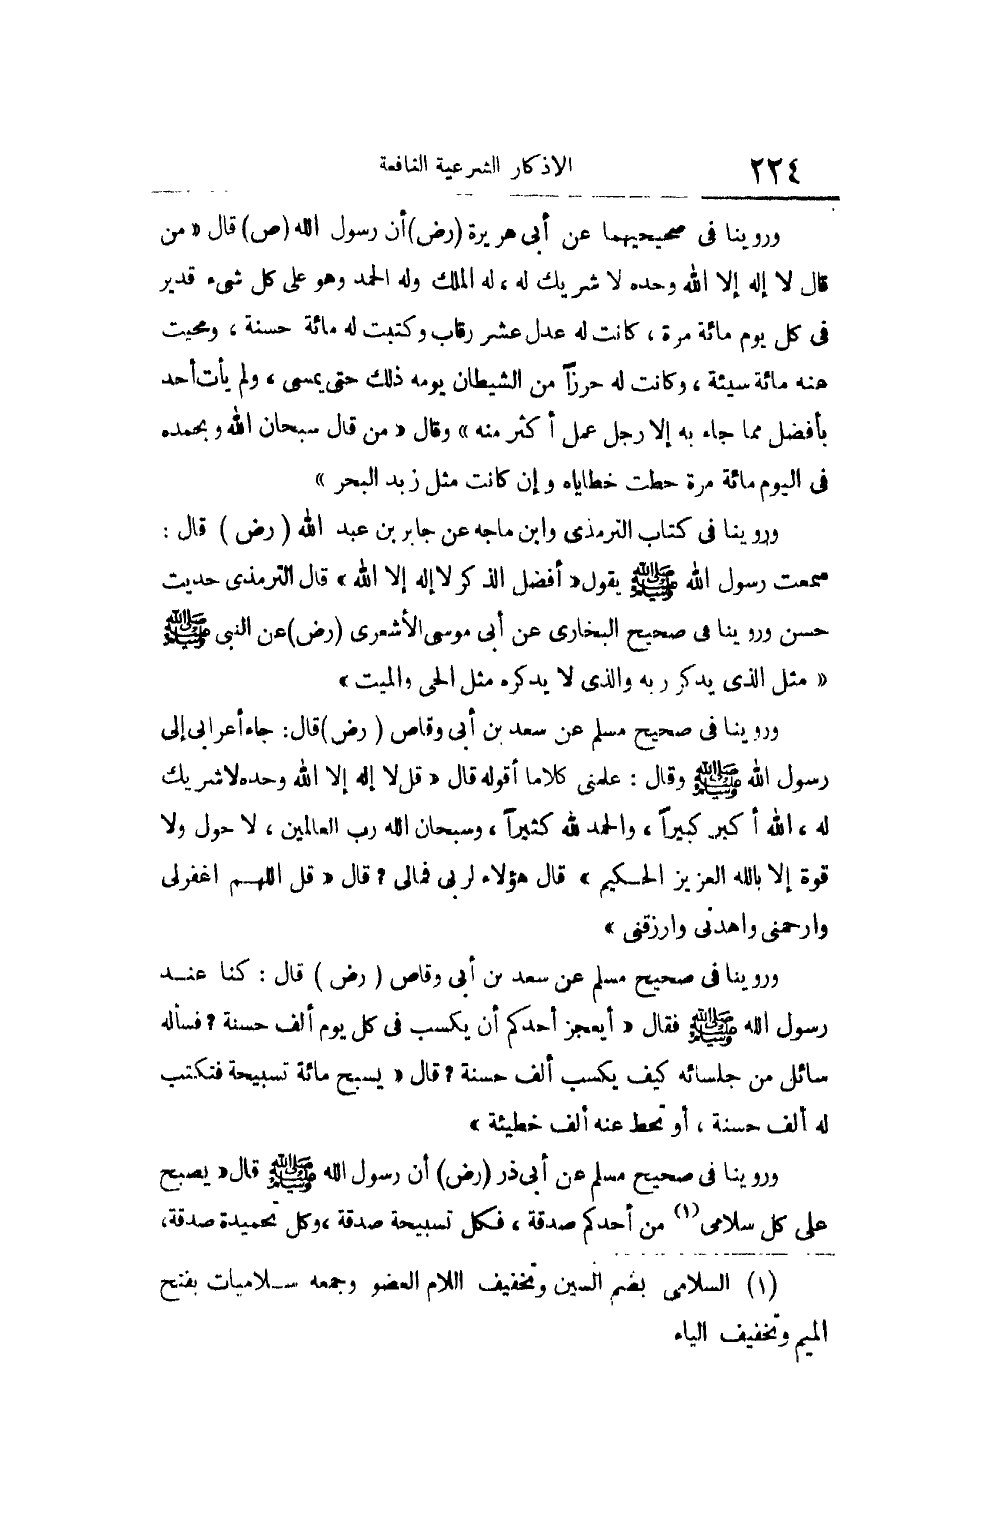 ٢٢٤ الاذكار الشرعية النافعة
وروينا فى صحيحيهما عن أبى هريرة (رض) أن رسول الله (ص) قال « من
قال لا إله إلا الله وحده لا شريك له ، له الملك وله الحمد وهو على كل شىء قدير
فى كل يوم مائة مرة ، كانت له عدل عشر رقاب وكتبت له مائة حسنة ، ومحيت
عنه مائة سيئة ، وكانت له حرزاً من الشيطان يومه ذلك حتى يمسى ، ولم يأت أحد
بأفضل مما جاء به إلا رجل عمل أكثر منه » وقال « من قال سبحان الله وبحمده
فى اليوم مائة مرة حطت خطاياه وإن كانت مثل زبد البحر »
وروينا فى كتاب الترمذى وابن ماجه عن جابر بن عبد الله ( رض ) قال :
سمعت رسول الله ﷺ يقول « أفضل الذكر لا إله إلا الله » قال الترمذى حديث
حسن وروينا فى صحيح البخارى عن أبى موسى الأشعرى (رض) عن النبى ﷺ
« مثل الذى يذكر ربه والذى لا يذكره مثل الحى والميت »
وروينا فى صحيح مسلم عن سعد بن أبى وقاص ( رض ) قال : جاء أعرابى إلى
رسول الله ﷺ وقال : علمنى كلاما أقوله قال « قل لا إله إلا الله وحده لا شريك
له ، الله أكبر كبيراً ، والحمد لله كثيراً ، وسبحان الله رب العالمين ، لا حول ولا
قوة إلا بالله العزيز الحكيم » قال هؤلاء لربى فمالى ؟ قال « قل اللهم اغفرلى
وارحمنى واهدنى وارزقنى »
وروينا فى صحيح مسلم عن سعد بن أبى وقاص ( رض ) قال : كنا عند
رسول الله ﷺ فقال « أيعجز أحدكم أن يكسب فى كل يوم ألف حسنة ؟ فسأله
سائل من جلسائه كيف يكسب ألف حسنة ؟ قال « يسبح مائة تسبيحة فتكتب
له ألف حسنة ، أو تحط عنه ألف خطيئة »
وروينا فى صحيح مسلم عن أبى ذر (رض) أن رسول الله ﷺ قال « يصبح
على كل سلامى (١) من أحدكم صدقة ، فكل تسبيحة صدقة ، وكل تحميدة صدقة،
(١) السلامى بضم السين وتخفيف اللام العضو وجمعه سلاميات بفتح
الميم وتخفيف الياء